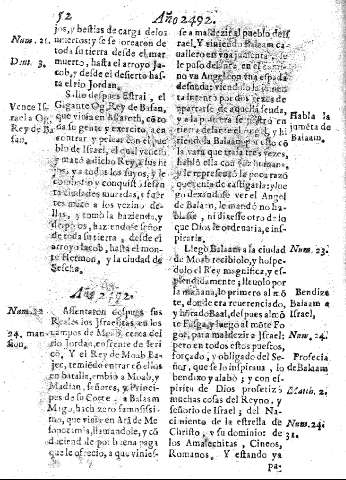 52
Año 2492.
Num. 21.
Deut. 3.
Vence Is-
rael a Og,
Rey de Ba-
san.
jos, y bestias de carga de los
muertos: y se señorearon de
toda su tierra desde el mar
muerto, hasta el arroyo Ja-
cob, y desde el desierto has-
ta el rio Jordan.
Salio despues Esrai, el
Gigante Og, Rey de Basan,
que vivia en Astaroth, cō to-
da su gente y exercito, a en-
contrar y pelear con el pue-
blo de Israel, el qual venciò
y matò a dicho Rey, a sus hi-
jos, y a todos los suyos, y le
combatio y conquistò sesen-
ta ciudades muradas, y fuer-
tes
y tomò la hazienda, y
despojos, haziendose señor
de toda su tierra, desde el
arroyo Jacob, hasta el mon-
te Hermon, y la ciudad de
Selcha.
Año 2492.
Num. 22
24. man-
sion.
Assentaron despues sus
Reales los Israelitas, en los
campos de Moab, cerca del
rio Jordan, enfrente de Jeri-
cò, Y el Rey de Moab Ba-
lac, temiēdo entrar cō ellos
en batalla, embiò a Moab, y
Madian, señores, y Princi-
pes de su Corte, a Balaam
Mago, hechizero famosissi-
mo, que vivia en Arā de Me-
sopotamia, llamandole, y cō-
duciendole por buena paga
que le ofrecio, a que vinies-
se a maldezir al pueblo de Is-
rael, Y viniendo Balaam ca-
vallero en una jumenta, se
le puso delante en el cami-
no un Angel con una espada
desnuda; viendolo la jumen-
ta intentò por dos vezes de
apartarse de aquella senda,
y a la postre se postrò en
tierra delante del Angel, y hi-
riendola Balaam por esto cō
la vara que traia tres vezes,
hablò ella con voz humana,
y le representò la poca razō
que tenia de castigarla: y luego
dexandose ver el Angel
de Balaam, le mandò no ha-
blasse, ni dixesse otro de lo
que Dios le ordenaria, e ins-
piraria.
Habla la
jumēta de
Balaam.
Llegò Balaam a la ciudad
de Moab recibiolo, y hospe-
dolo el Rey magnifica, y es-
plendidamente, lleuolo por
la mañana, lo primero al mō-
te, donde era reuerenciado,
y honrado Baal, despues al mōte
Fasga, y luego al mōte Fo-
gor, para maldezir a Israel;
pero en todos estos puestos,
forçado, y obligado del Se-
ñor, que se lo inspiraua, lo
bendixo y alabò; y con es-
piritu de Dios profetizò
muchas cosas del Reyno, y
señorio de Israel; del Na-
cimiento de la estrella de
Christo, y su dominio: de
los Amalechitas, Cineos,
Romanos. Y estando ya
Num. 23.
Bendize
Balaam a
Israel,
Num. 24.
Profecia
de Balaam
Matth. 2.
Num. 24.
31.
pa-